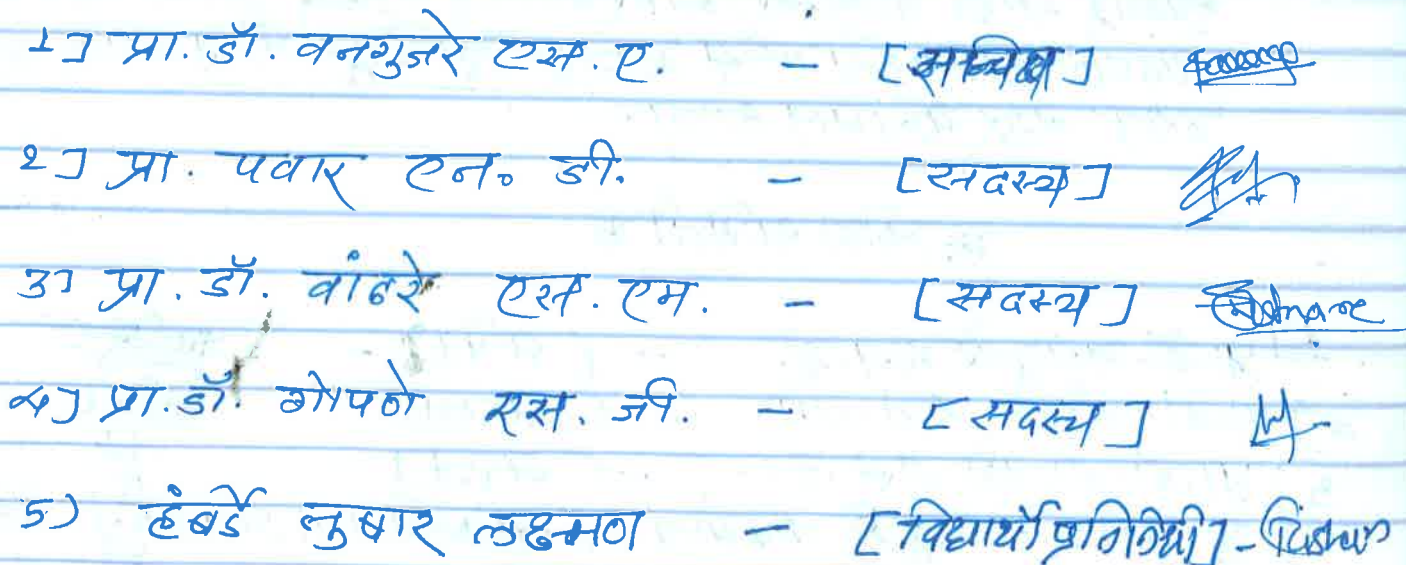 १] प्रा. डॉ. वनगुजरे एस. ए. - [सचिव]
२] प्रा. पवार एन. डी. - [सदस्य]
३] प्रा. डॉ. वांढरे एस. एम. - [सदस्य]
४] प्रा. डॉ. गोपणे एस. जी. - [सदस्य]
५) हंबर्डे तुषार लक्ष्मण - [विद्यार्थी प्रतिनिधी] -